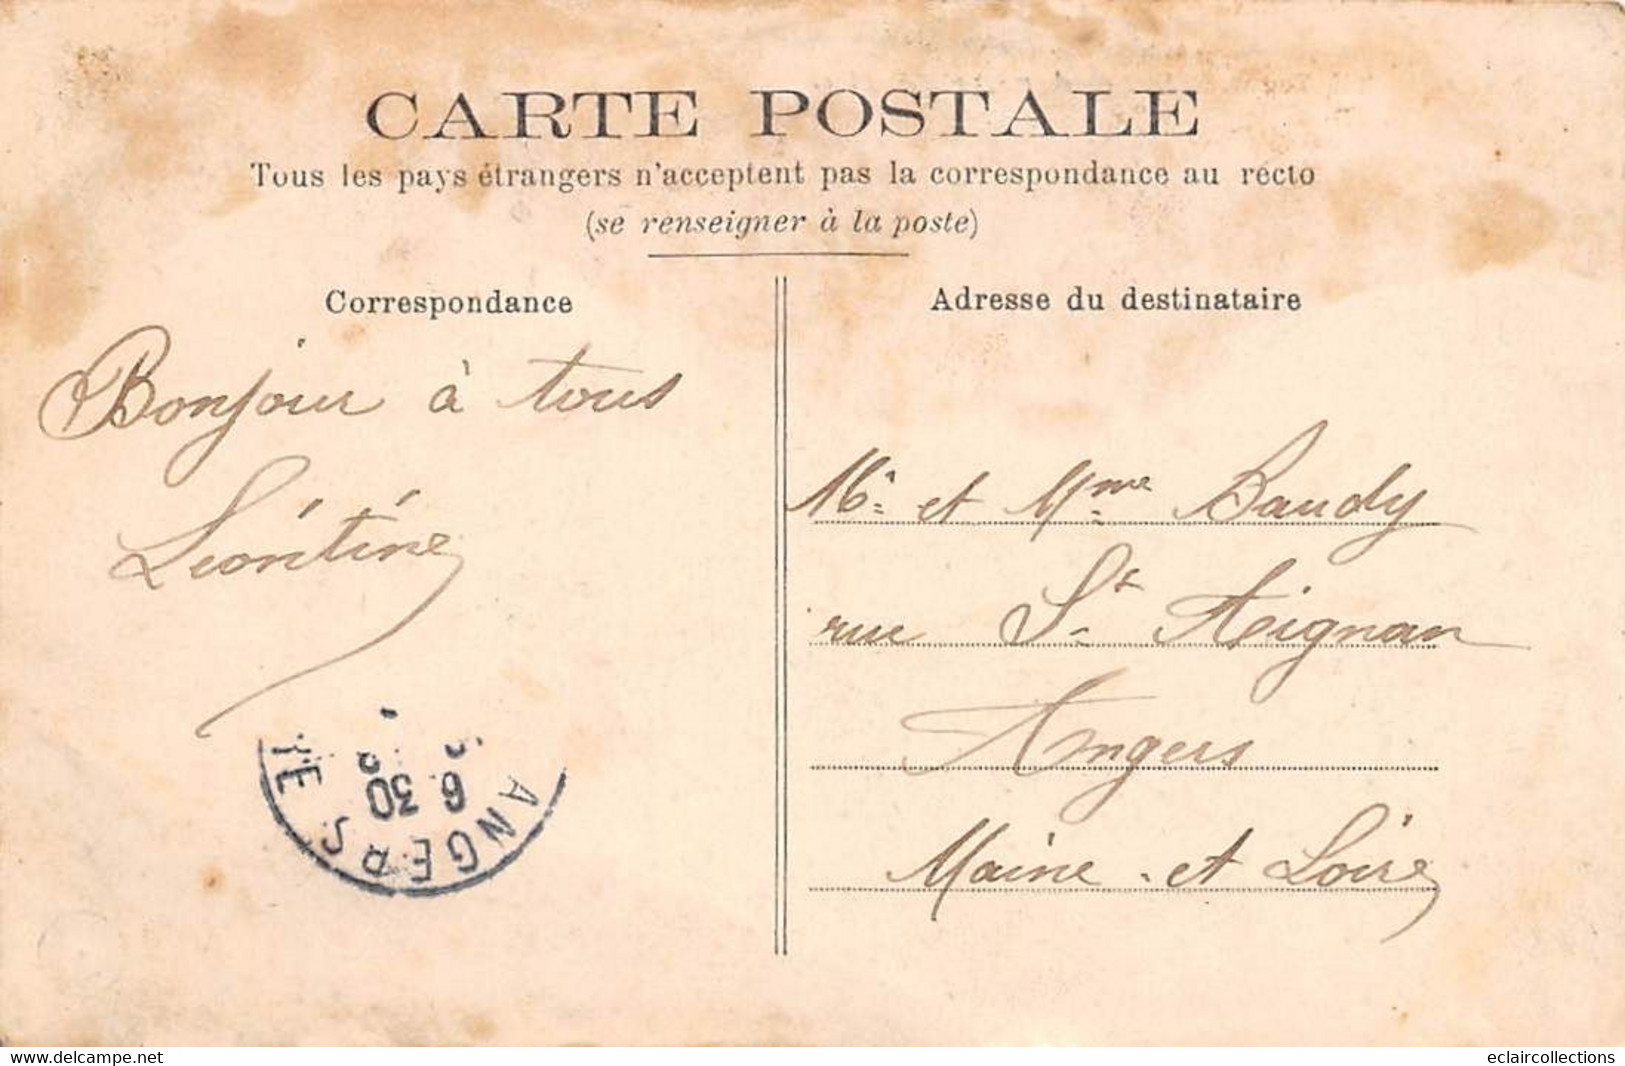 CARTE POSTALE
Tous les pays étrangers n'acceptent pas la correspondance au recto
(se renseigner à la poste)
Correspondance
Bonjour à tous
Léontine
ANGERS
6 30
Adresse du destinataire
Mr et Mme Baudy
rue St Aignan
Angers
Maine-et Loire
www.delcampe.net
eclaircollections